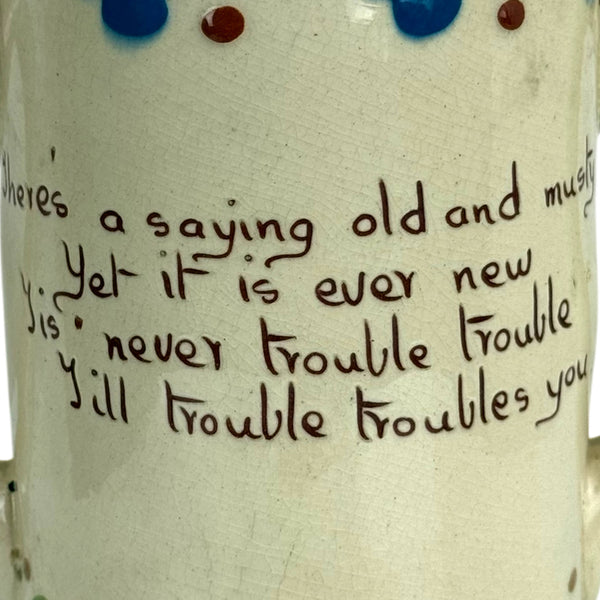 There's a saying old and musty
Yet it is ever new
Tis' never trouble trouble
Till trouble troubles you